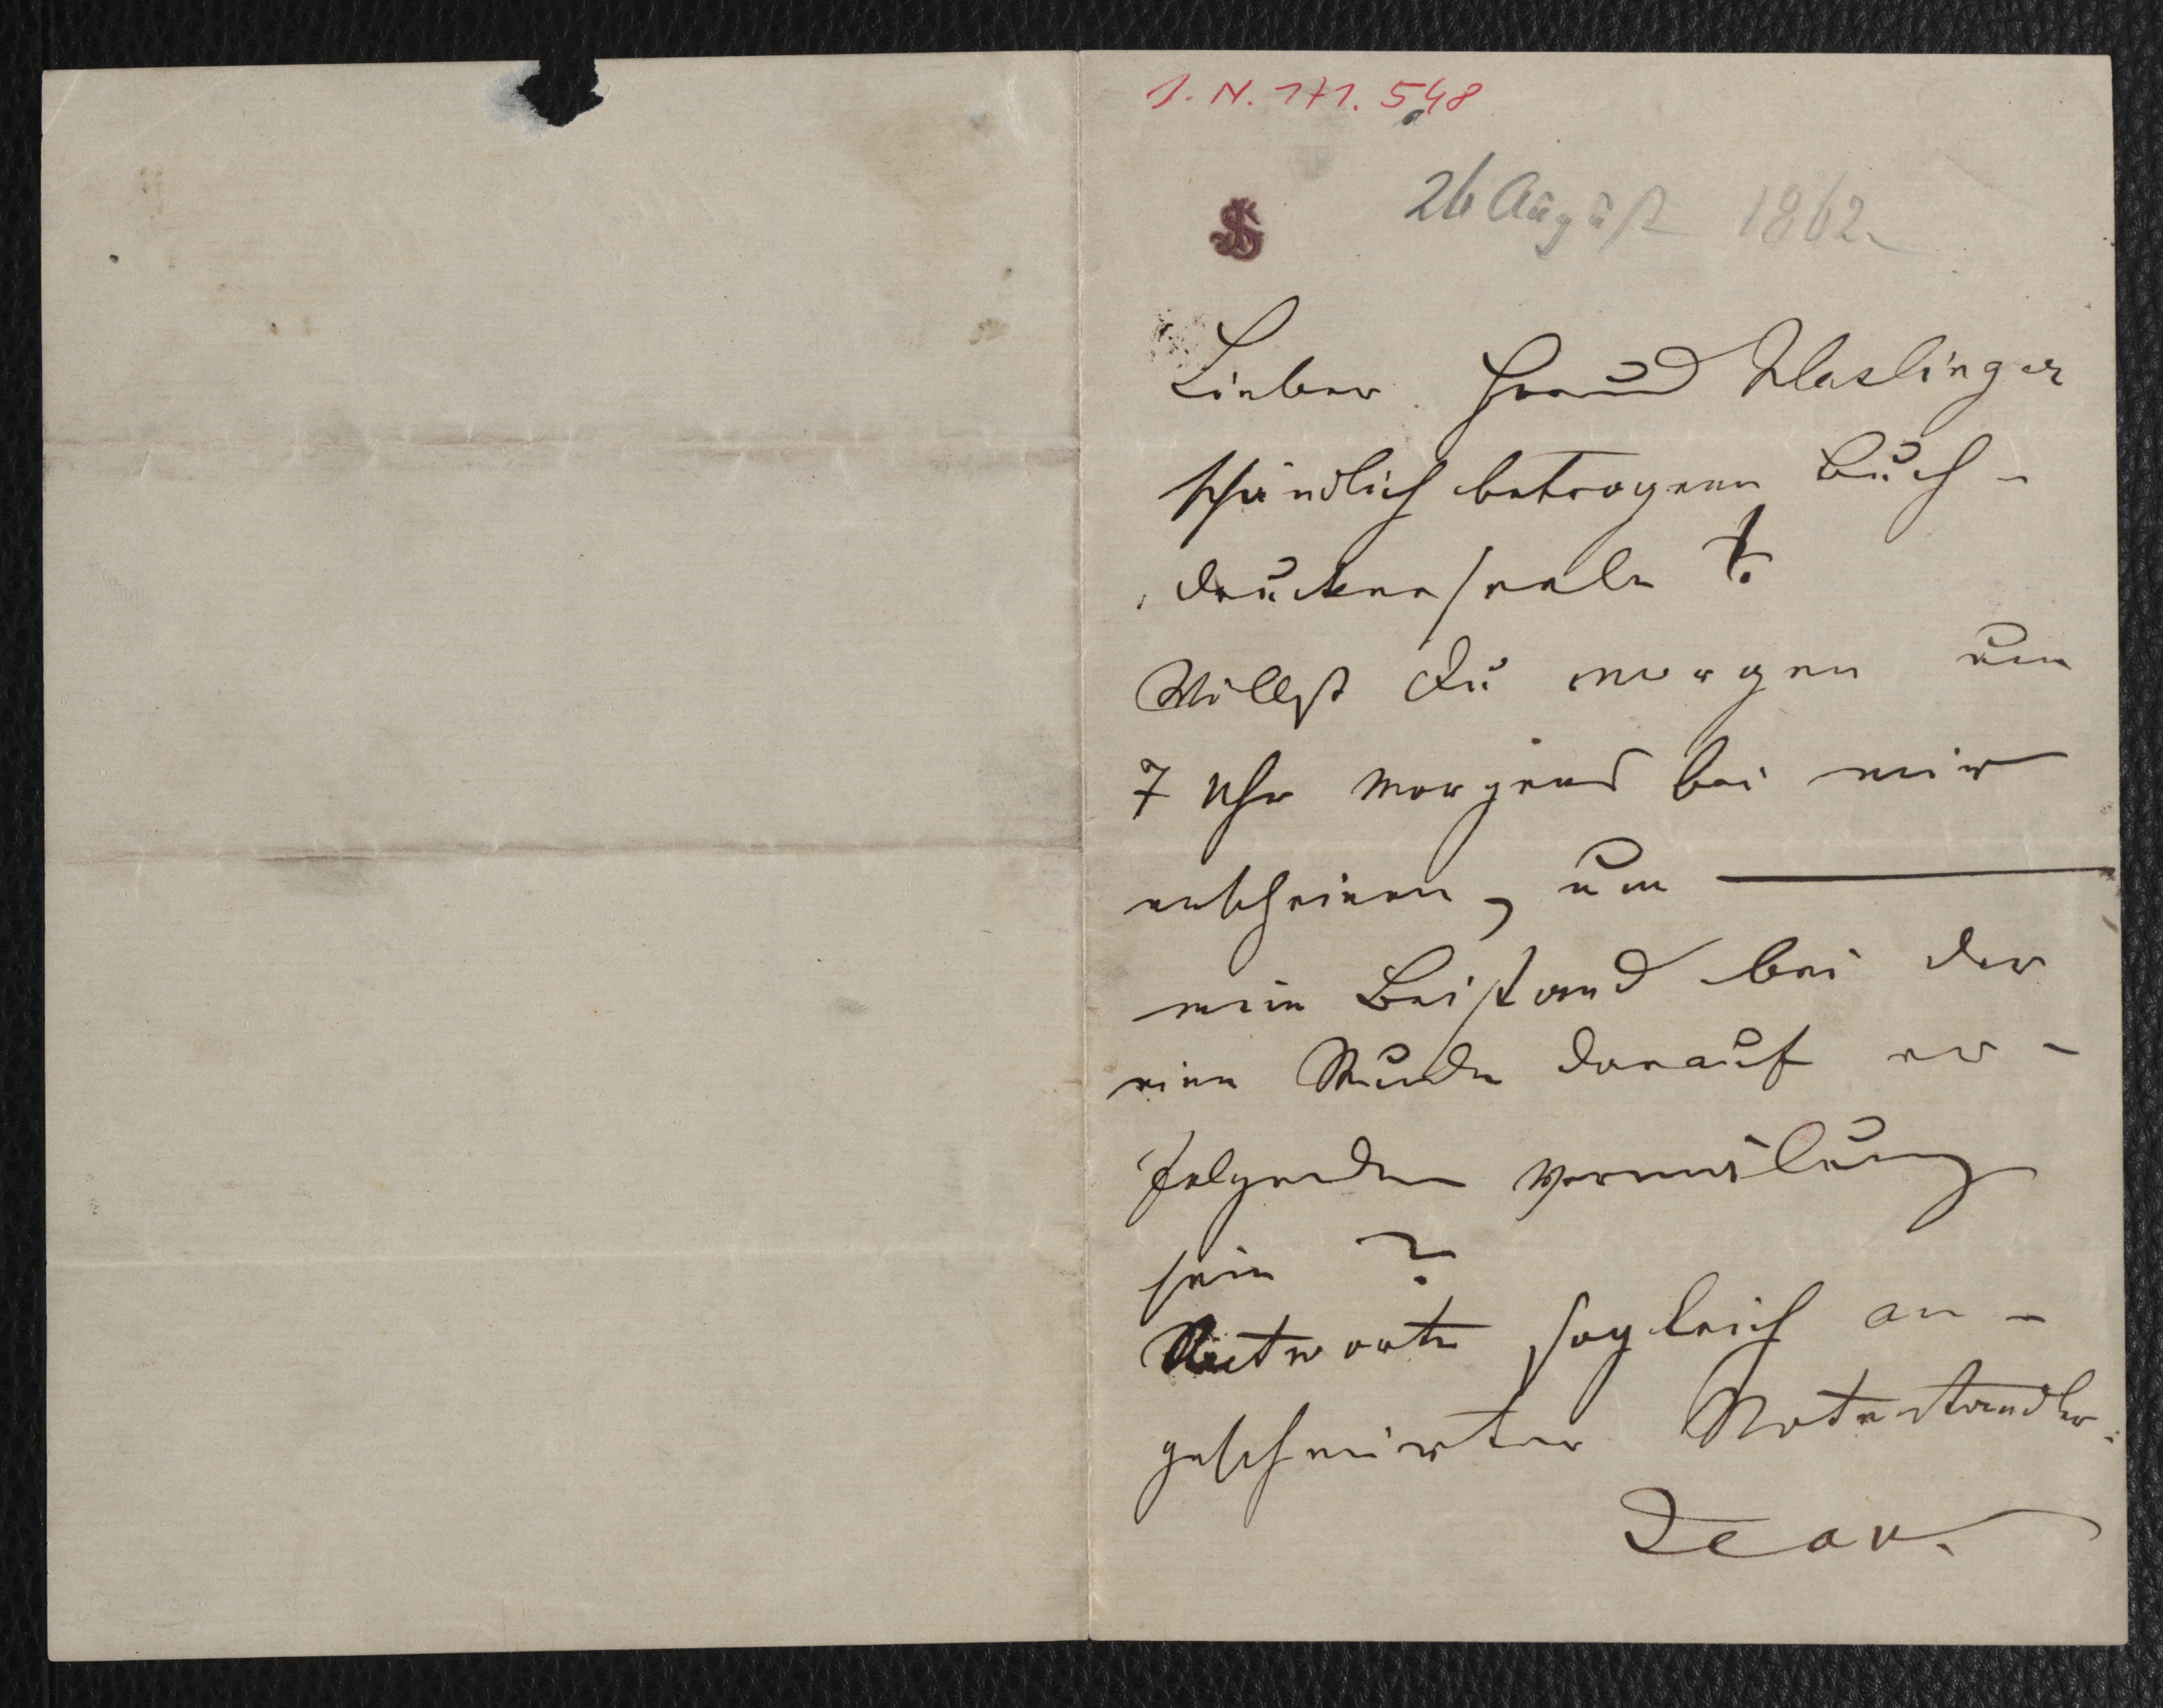 I. N. 171.548
26 August 1862
JS
Lieber Freund Haslinger
schändlich betrogene Buch-
druckerseele!
Willst Du morgen um
7 Uhr Morgens bei mir
erscheinen, um
mein Beistand bei der
eine Stunde darauf er-
folgenden Vermälung
sein?
Antworte sogleich an-
geschmirter
Jean.